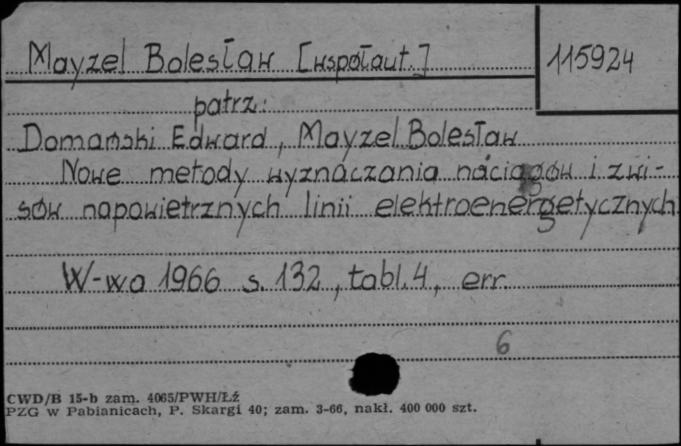 Mayzel Bolesław [współaut.]
115924
patrz:
Domański Edward, Mayzel Bolesław
Nowe metody wyznaczania naciągów i zwi-
sów napowietrznych linii elektroenergetycznych
W-wa 1966 s. 132, tabl. 4, err.
6
CWD/B 15-b zam. 4065/PWH/Łź
PZG w Pabianicach, P. Skargi 40; zam. 3-66, nakł. 400 000 szt.